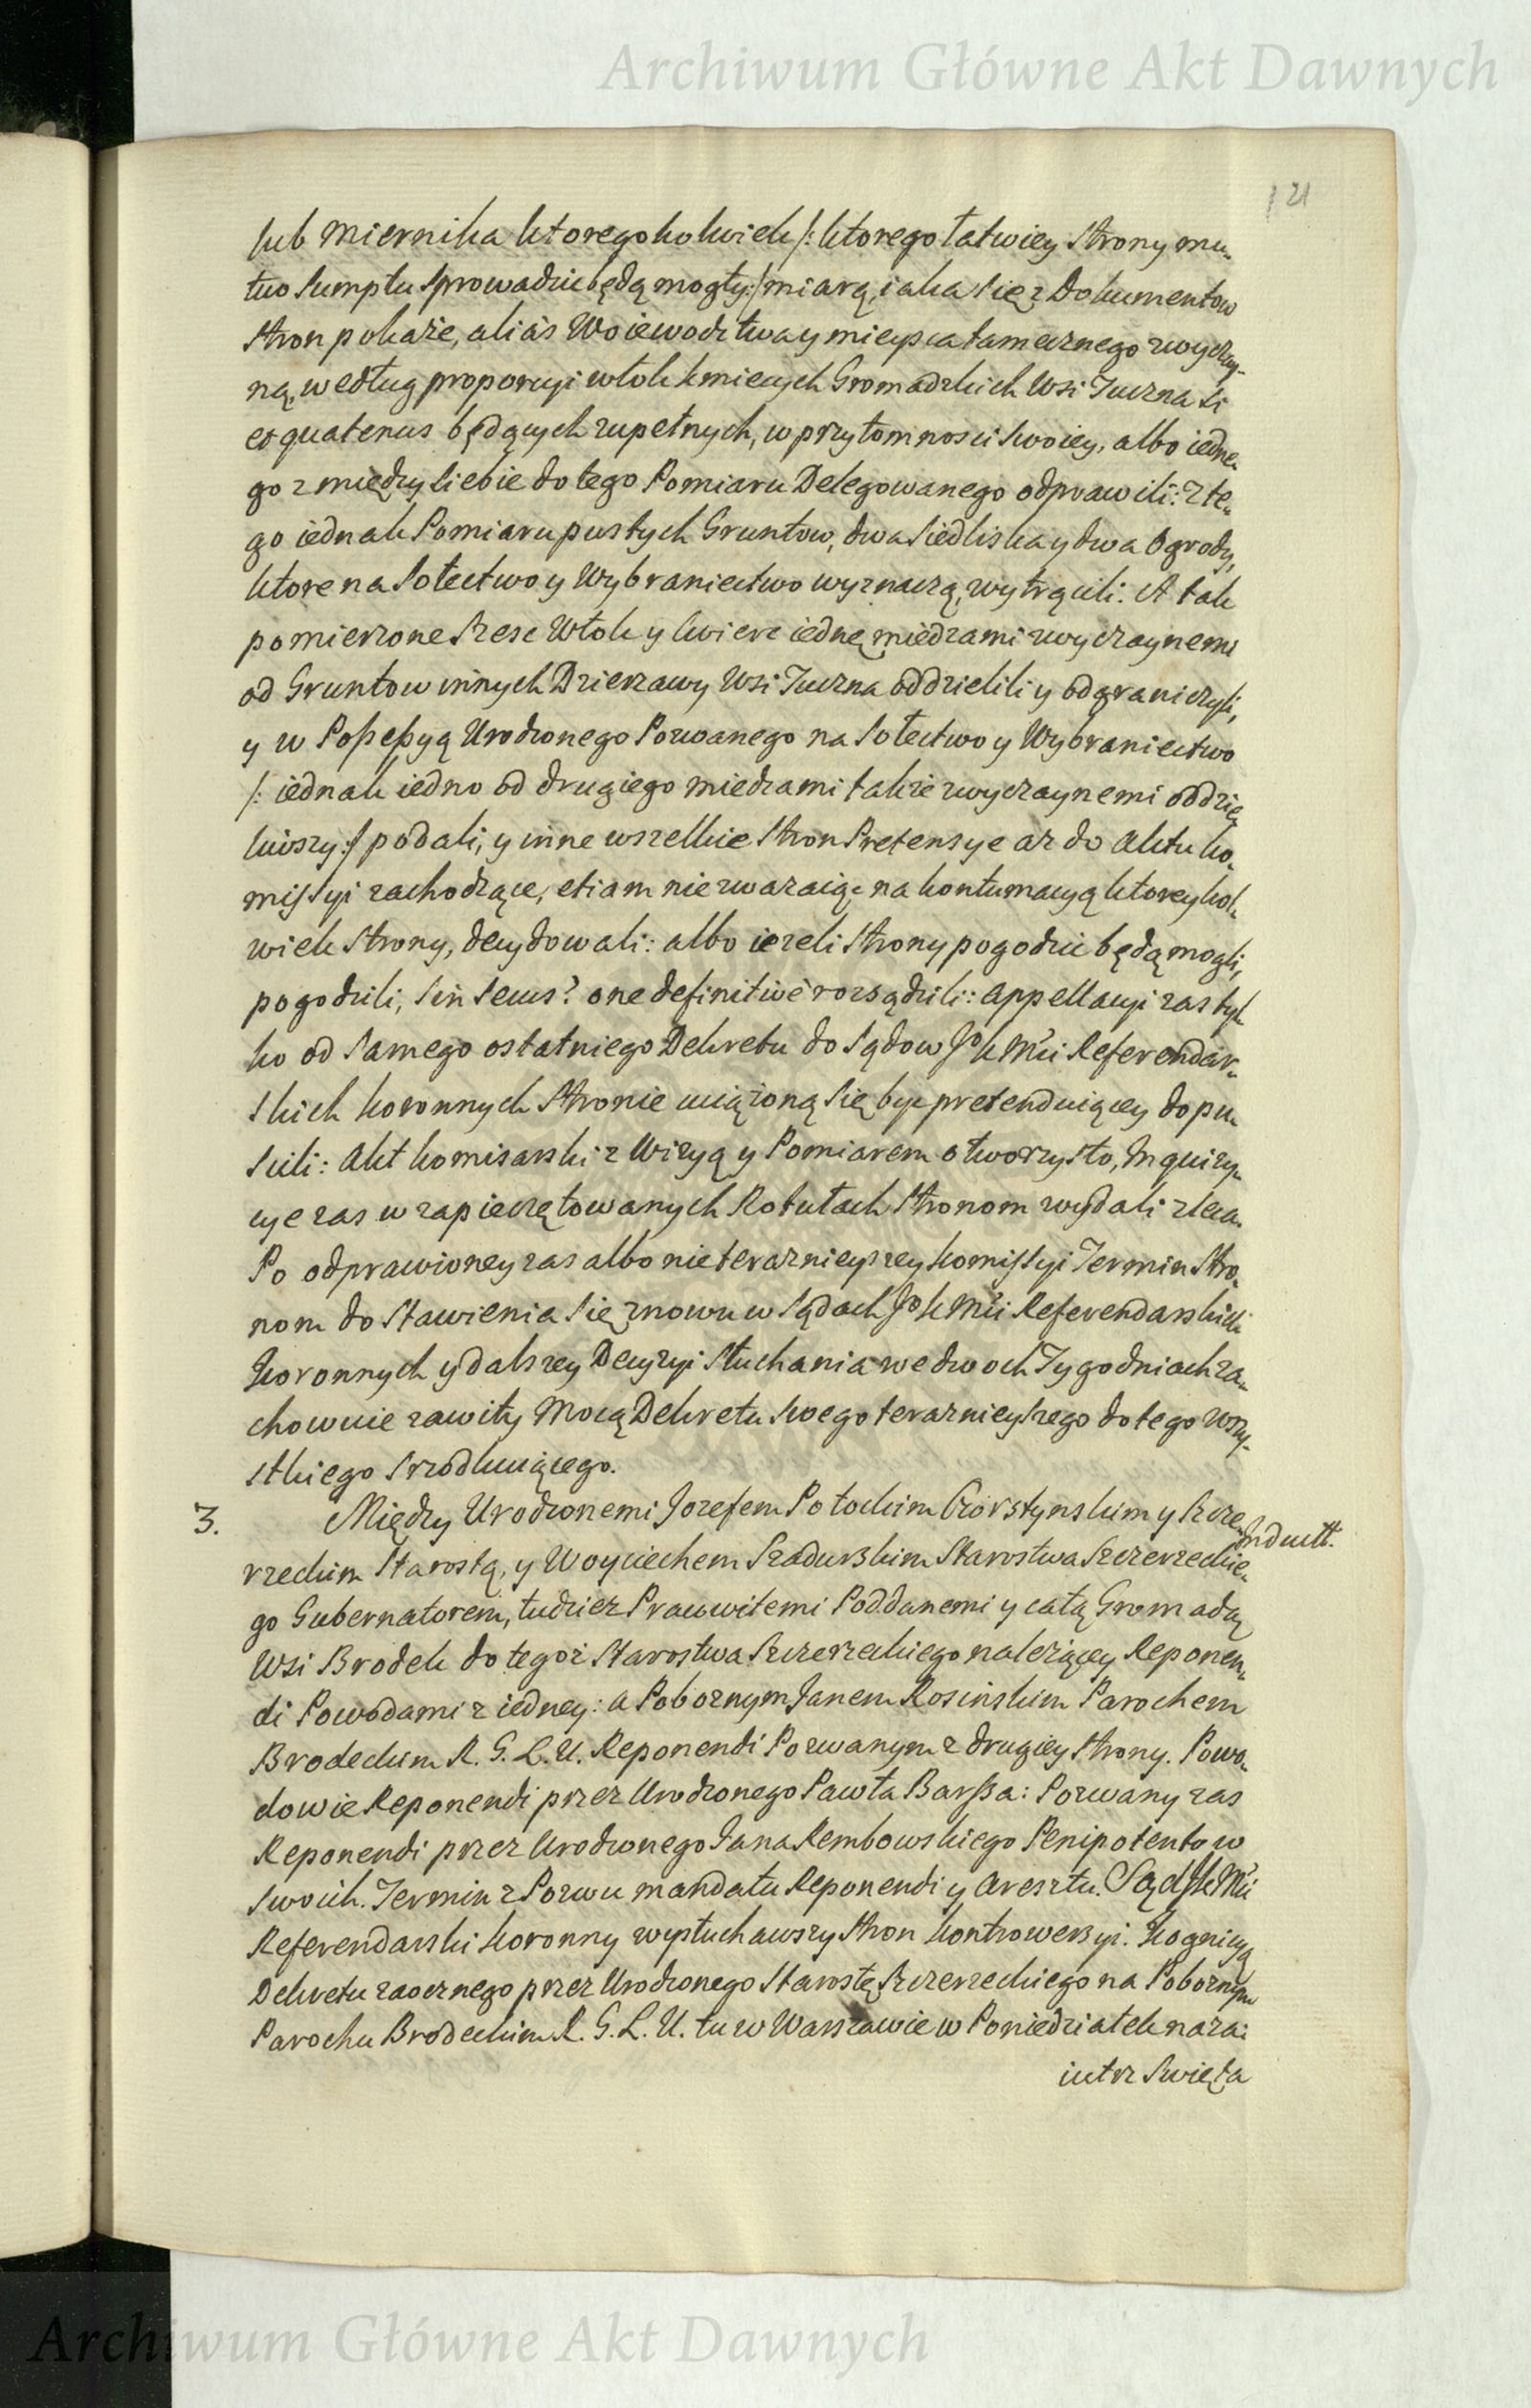 Archiwum Główne Akt Dawnych
121
lub Miernika ktoregokolwiek /: ktorego łatwiey Strony mu-
tuo Sumptu Sprowadzic będą mogły :/ miarą, iaka się z Dokumentow
Stron pokaże, aliás Woiewodztwa y mieysca tamecznego zwyczay-
ną, według proporcyi włok kmiecych Gromadzkich Wsi Tuczna si
et quatenus będących zupełnych, w przytomnosci swoiey, albo iedne-
go z między siebie do tego Pomiaru Delegowanego odprawili: z te-
go iednak Pomiaru pustych Gruntow, dwa Siedliska y dwa Ogrody,
ktore na Sołectwo y Wybraniectwo wyznaczą, wytrącili: A tak
pomierzone szesc Włok y cwierc iednę miedzami zwyczaynemi
od Gruntow innych Dzierzawy Wsi Tuczna oddzielili y odgraniczyli,
y w Possessyą Urodzonego Pozwanego na Sołectwo y Wybraniectwo
/: iednak iedno od drugiego miedzami także zwyczaynemi oddzie-
liwszy :/ podali, y inne wszelkie Stron Pretensye aż do Aktu Ko-
missyi zachodzące, etiam nie zwazaiąc na kontumacyą ktoreykol-
wiek Strony, decydowali: albo iezeli Strony pogodzic będą mogli,
pogodzili, Sin secus? one definitivè rozsądzili: Appellacyi zas tyl-
ko od samego ostatniego Dekretu do Sądow Jo K Mći Referendar-
skich Koronnych Stronie uciążoną się byc pretenduiącey dopu-
scili: Akt Komisarski z Wizyą y Pomiarem otworzysto, Inquizy-
cye zas w zapieczętowanych Rotułach Stronom wydali zleca.
Po odprawioney zas albo nie terazniejszey Komissyi Termin Stro-
nom do Stawienia się znowu w Sądach Jo K Mći Referendarskich
Koronnych y dalszey Decyzyi Słuchania we dwoch Tygodniach za-
chowuie zawity Mocą Dekretu swego terazniejszego do tego wszy-
stkiego Srzodkuiącego.
3. Między Urodzonemi Jozefem Potockim Czorstynskim y Szcze- Inductt.
rzeckim Starostą, y Woyciechem Szadurskim Starostwa Szczerzeckie-
go Gubernatorem, tudziez Pracowitemi Poddanemi y całą Gromadą
Wsi Brodek do tegoż Starostwa Szczerzeckiego należącey Reponen-
di Powodami z iedney: a Poboznym Janem Rosińskim Parochem
Brodeckim R. G. L. U. Reponendi Pozwanym z drugiey Strony. Powo-
dowie Reponendi przez Urodzonego Pawła Barssa: Pozwany zas
Reponendi przez Urodzonego Jana Rembowskiego Plenipotentow
swoich. Termin z Pozwu mandatu Reponendi y Aresztu. Sąd JK Mći
Referendarski Koronny wysłuchawszy Stron kontrowersyi. Kognicyą
Dekretu zaocznego przez Urodzonego Starostę Szczerzeckiego na Poboznym
Parochu Brodeckim R. G. L. U. tu w Warszawie w Poniedziałek naza-
iutrz Swięta
Archiwum Główne Akt Dawnych